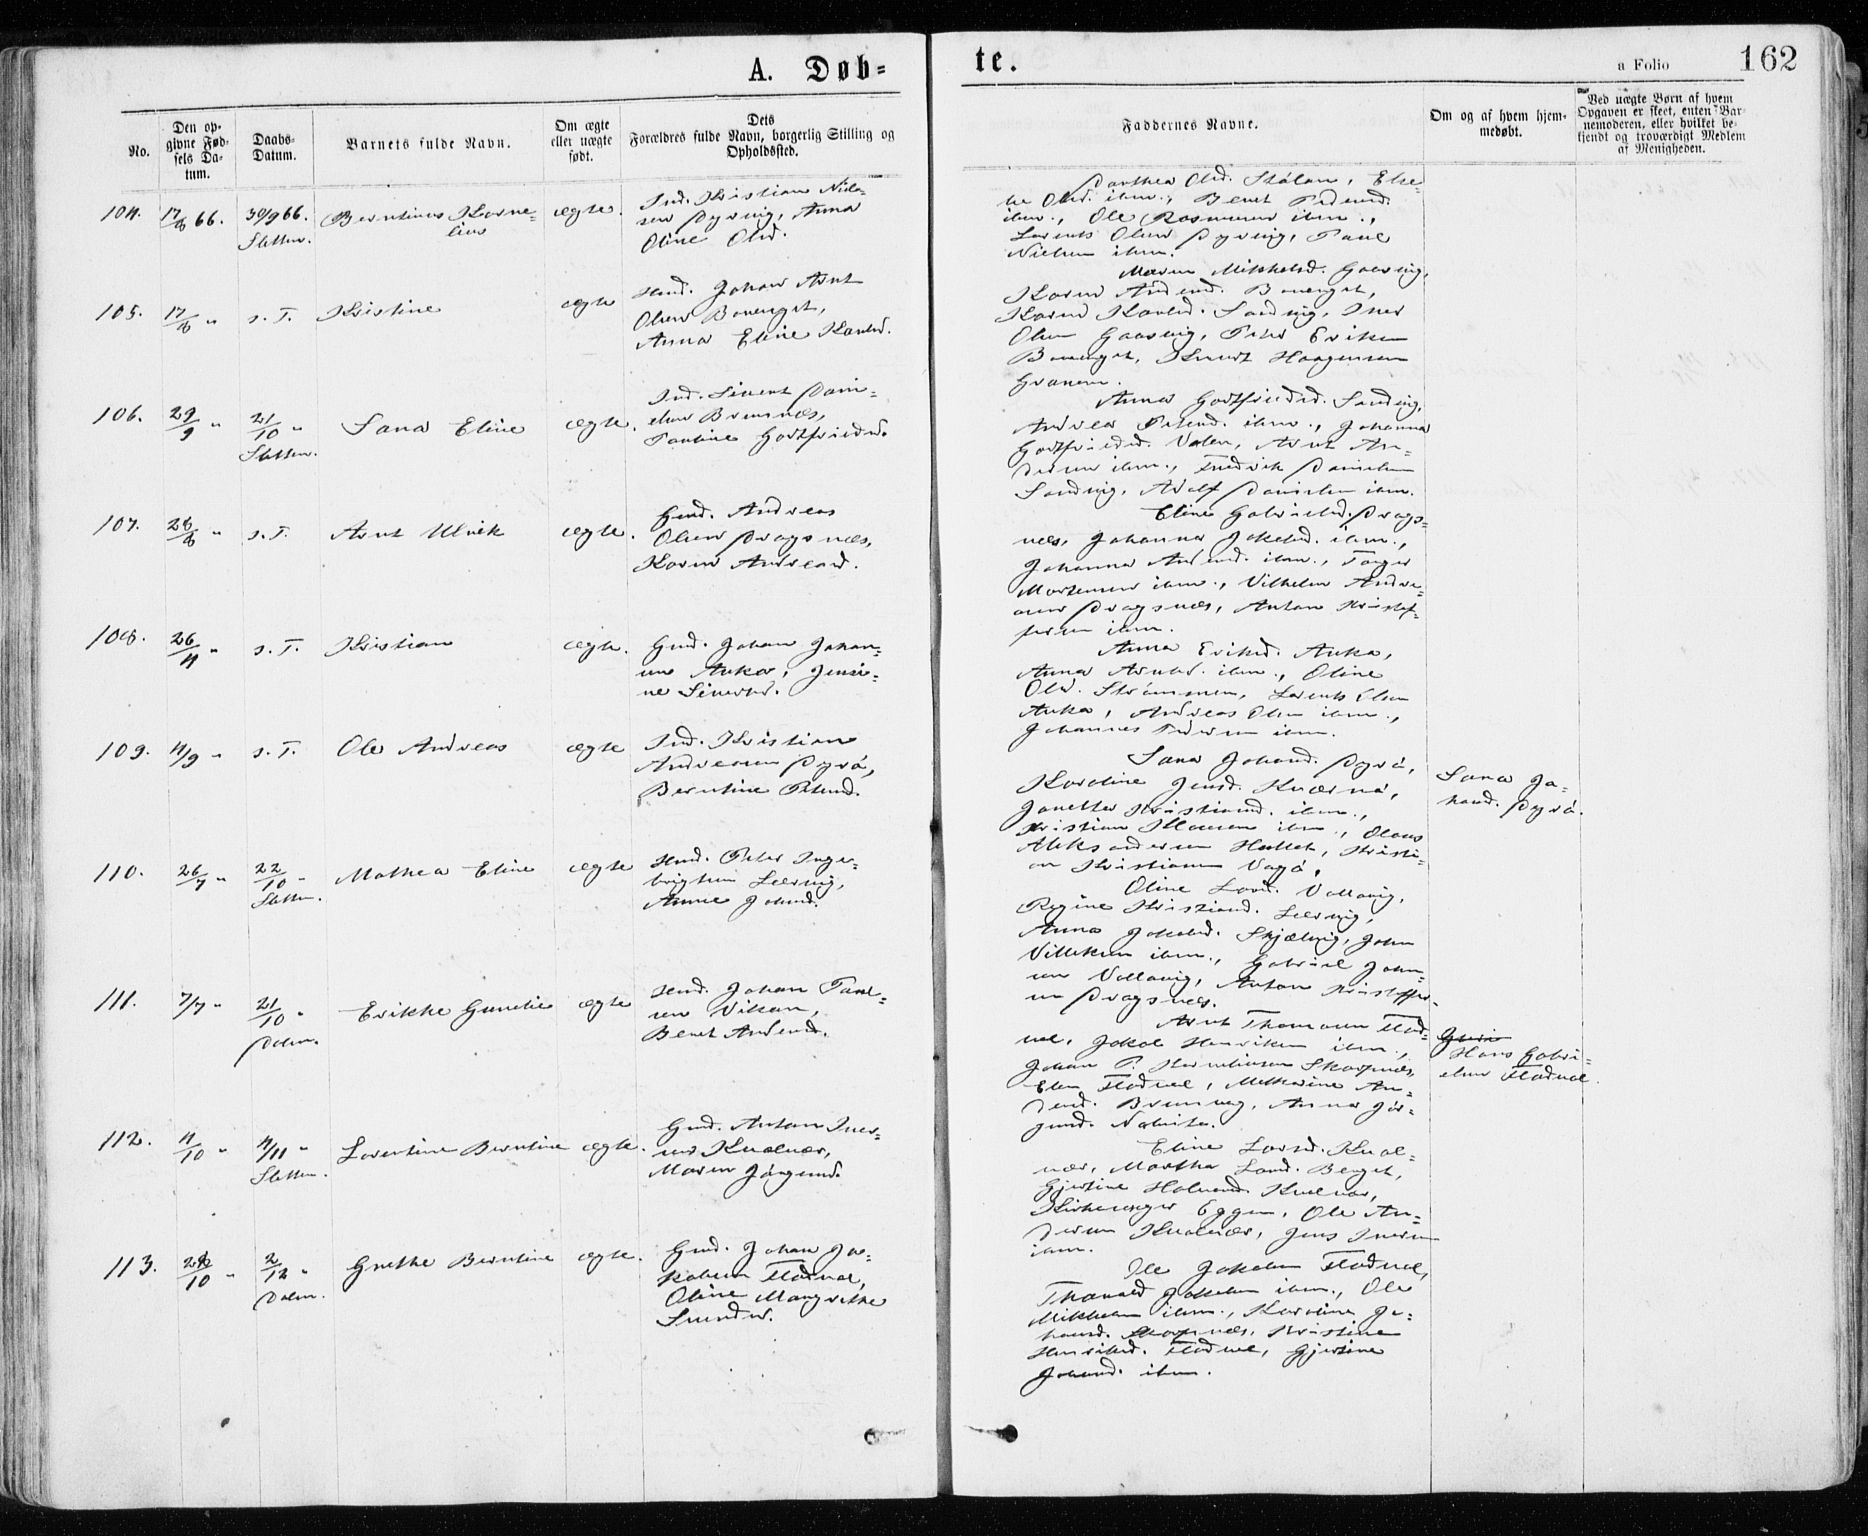 A. Døb=
te.
a Folio 162
No.
Den op-
givne Fød-
sels Da-
tum.
Daabs-
Datum.
Barnets fulde Navn.
Om ægte
eller uægte
født.
Dets
Forældres fulde Navn, borgerlig Stilling og
Opholdssted.
Faddernes Navne.
Om og af hvem hjem-
medøbt.
Ved uægte Børn af hvem
Opgaven er skeet, enten Bar-
nemoderen, eller hvilket be-
kjendt og troværdigt Medlem
af Menigheden.
104. 17/8 66. 30/9 66. Berntinus Korne=
Sletten. lius
ægte.
Ind. Kristian Niel=
sen Dyrvig, Anna
Oline Olsd.
Dorthea Olsd. Skålan, Else=
be Olsd. ibm., Beret Pedersd.
ibm., Ole Rasmusen ibm.,
Lorents Olsen Dyrvig, Paul
Nielsen ibm.
105. 17/8 " s. T. Kristine ægte
Huusd. Johan Arnt
Olsen Bovenget,
Anna Eline Karlsd.
Maren Mikkelsd. Gaasvig,
Karen Andersd. Bovenget,
Karen Karlsd. Sandvig, Iver
Olsen Gaasvig, Peter Eriksen
Bovenget, Knudt Haagensen
Granen.
106. 29/9 " 21/10 " Sana Eline ægte.
Sletten.
Ind. Sivert Dani=
elsen Bremnæs,
Pauline Gottfriedsd.
Anna Gottfriedsd. Sandvig,
Andrea Petersd. ibm., Johanna
Gottfriedsd. Valen, Arnt An=
dersen ibm., Fredrik Danielsen
Sandvig, Adolf Danielsen ibm.
107. 28/8 " s. T. Arnt Ulrik ægte.
Gmd. Andreas
Olsen Dragsnæs,
Karen Andreasd.
Eline Gabrielsd. Drags=
næs, Johanna Jakobsd. ibm.,
Johanna Andersd. ibm., Torger
Mortensen ibm., Vilhelm Andre=
asen Dragsnæs, Anton Kristof=
fersen ibm.
108. 26/4 " s. T. Kristian ægte.
Gmd. Johan Johan=
sen Anka, Jensi=
ne Sivertsd.
Anna Eriksd. Anka,
Anna Arntsd. ibm., Oline
Olsd. Strømmen, Lorents Olsen
Anka, Andreas Olsen ibm.,
Johannes Pedersen ibm.
109. 4/9 " s. T. Ole Andreas ægte
Ind. Kristian
Andreasen Dyrø,
Berntine Petersd.
Sana Johansd. Dyrø,
Karoline Jensd. Kværnø,
Janetta Kristiansd. ibm.,
Kristian Klausen ibm., Olaus
Aleksandersen Hallet, Kristi=
an Kristiansen Vagø.
Sana Jo=
hansd. Dyrø.
110. 26/7 " 22/10 " Mathea Eline ægte
Sletten.
Huusd. Peter Inge=
brigtsen Leervig,
Anne Johnsd.
Oline Larsd. Vollavig,
Regine Kristiansd. Leervig,
Anna Jakobsd. Skjælvig, John
Villeksen ibm., Gabriel John=
sen Vollavig, Anton Kristoffer=
sen Dragsnæs.
111. 7/7 " 21/10 " Erikke Gunelie ægte
Dolm.
Huusd. Johan Paul=
sen Vikan,
Beret Andersd.
Arnt Thomasen Flad=
val, Jakob Henriksen ibm.,
Johan P. Korneliusen Skarpnæs,
Elen Fladval, Methrine An=
dersd. Brunveg, Anna Jør=
gensd. Nabeita.
Hans Gabri=
elsen Fladval.
112. 4/10 " 4/11 " Lorentine Berntine ægte.
Sletten.
Gmd. Anton Iver=
sen Kvalvær,
Maren Jørgensd.
Eline Larsd. Kval=
vær, Martha Larsd. Berget,
Gjertine Halvorsd. Kvalvær,
Kirkesanger Eggen, Ole An=
dersen Kvalvær, Jens Iversen
ibm.
113. 28/10 " 2/12 " Grethe Berntine ægte.
Dolm.
Gmd. Johan Ja=
kobsen Fladval,
Oline Margrethe
Svendsd.
Ole Jakobsen Fladval,
Thorvald Jakobsen ibm., Ole
Mikkelsen ibm., Karoline Jo=
hansd. Skarpnæs, Kristine
Henriksd. Fladval, Gjertine
Johansd. ibm.